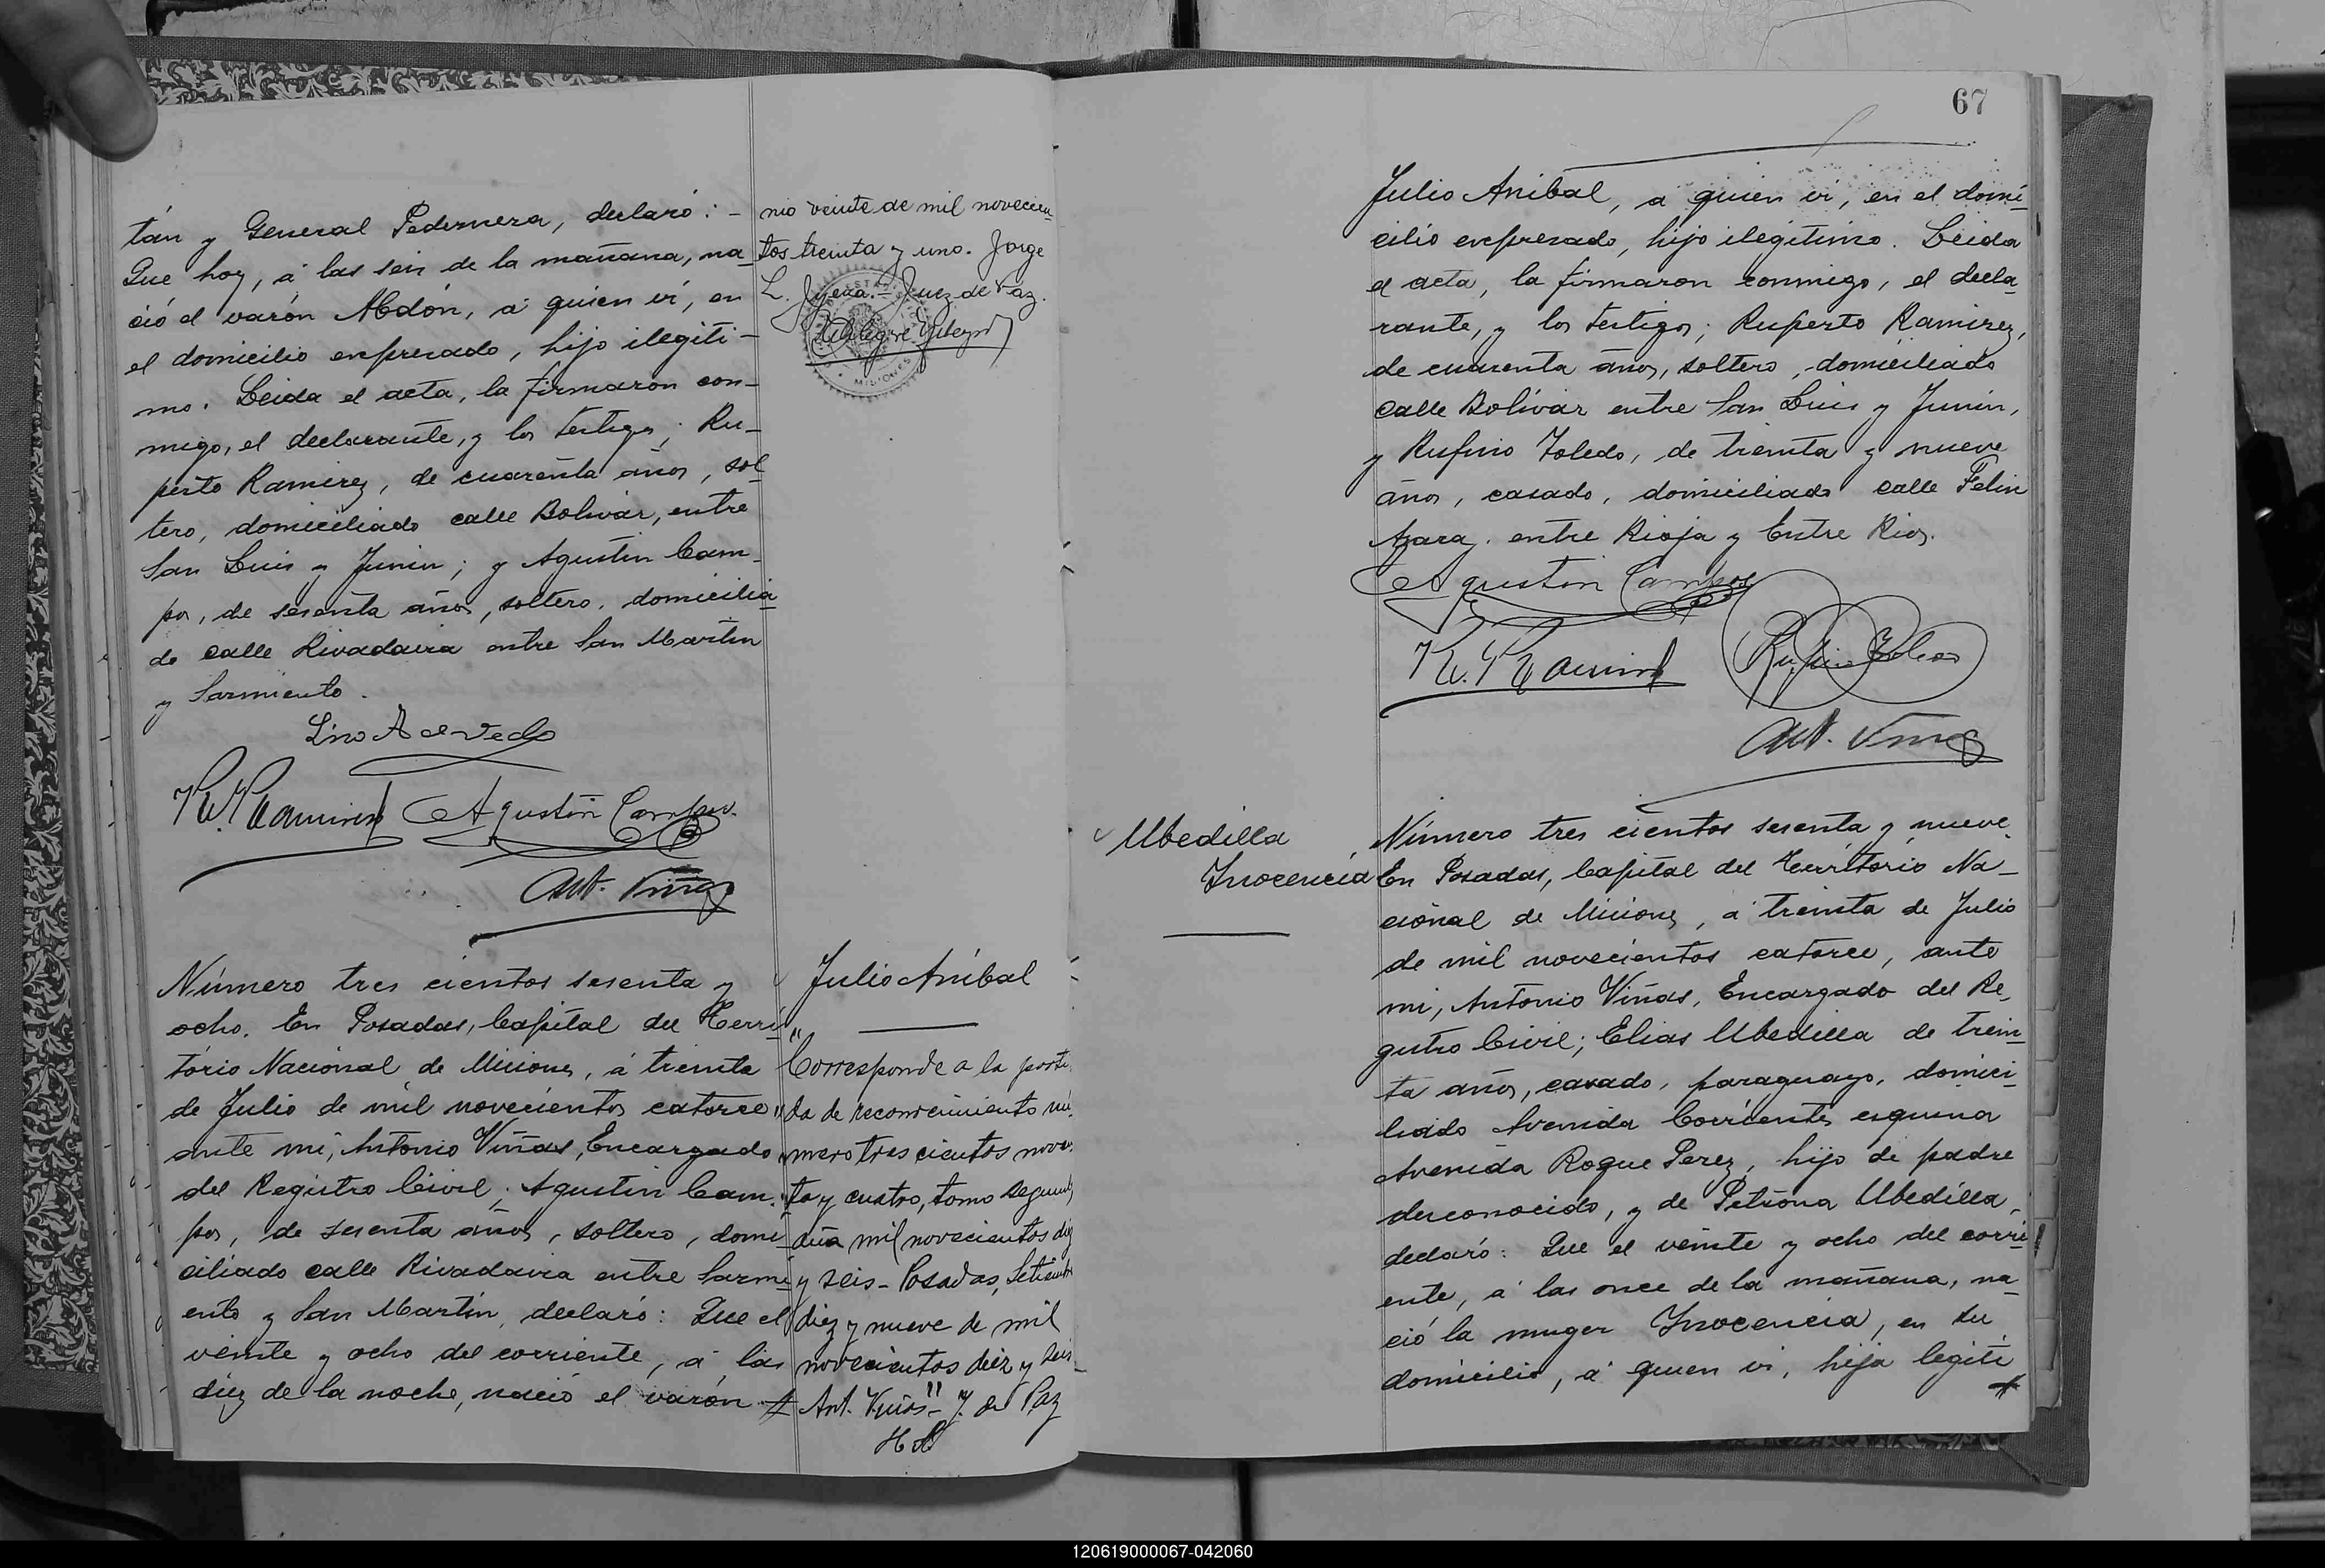 tán y General Pedernera, declaró: –
Que hoy, á las seis de la mañana, na-
ció el varón Abdón, á quien ví, en
el domicilio expresado, hijo ilegiti-
mo. Leida el acta, la firmaron con-
migo, el declarante, y los testigos; Ru-
perto Ramirez, de cuarenta años, sol-
tero, domiciliado calle Bolivar, entre
San Luis y Junin; y Agustin Cam-
pos, de sesenta años, soltero, domicilia-
do calle Rivadavia entre San Martin
y Sarmiento.
Lino Acevedo
R. Ramirez Agustín Campos.
Ant. Viñas
nio veinte de mil novecien-
tos treinta y uno. Jorge
L. Juez de Paz.
MISIONES
Número tres cientos sesenta y
ocho. En Posadas, Capital del Terri-
tório Nacional de Misiones, á treinta
de Julio de mil novecientos catorce
ante mi, Antonio Viñas, Encargado
del Registro Civil; Agustin Cam-
pos, de sesenta años, soltero, domi-
ciliado calle Rivadavia entre Sarmi-
ento y San Martín, declaró: Que el
veinte y ocho del corriente, á las
diez de la noche, nació el varón
Julio Aníbal
"Corresponde a la parti-
"da de reconocimiento nú-
"mero tres cientos noven-
ta y cuatro, tomo segundo
mil novecientos diez
y seis – Posadas, Setiembre
diez y nueve de mil
novecientos diez y seis –
Ant. Viñas" – J. de Paz
67
Julio Anibal, a quien ví, en el domi-
cilio expresado, hijo ilegitimo. Leida
el acta, la firmaron conmigo, el decla-
rante, y los testigos; Ruperto Ramirez,
de cuarenta años, soltero, domiciliado
calle Bolívar entre San Luis y Junin,
y Rufino Toledo, de treinta y nueve
años, casado, domiciliado calle Felix
Azara, entre Rioja y Entre Rios.
Agustín Campos
R. Ramirez Rufino Toledo
Ant. Viñas
Ubedilla
Inocencia
Número tres cientos sesenta y nueve
En Posadas, Capital del Território Na-
cional de Misiones, á treinta de Julio
de mil novecientos catorce, ante
mi, Antonio Viñas, Encargado del Re-
gistro Civil; Elias Ubedilla de trein-
ta años, casado, paraguayo, domici-
liado Avenida Corrientes esquina
Avenida Roque Perez, hijo de padre
desconocido, y de Petrona Ubedilla,
declaró: Que el veinte y ocho del corri-
ente, á las once de la mañana, na-
ció la muger Inocencia, en su
domicilio, á quien vi, hija legiti
120619000067-042060